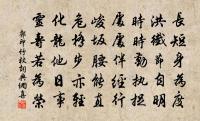 長短身為度
洪纖節自明
時時勤執捉
處處伴經行
峻坂腰能直
危橋步亦輕
化龍他日事
靈壽若為榮
郭印竹杖詞典網書